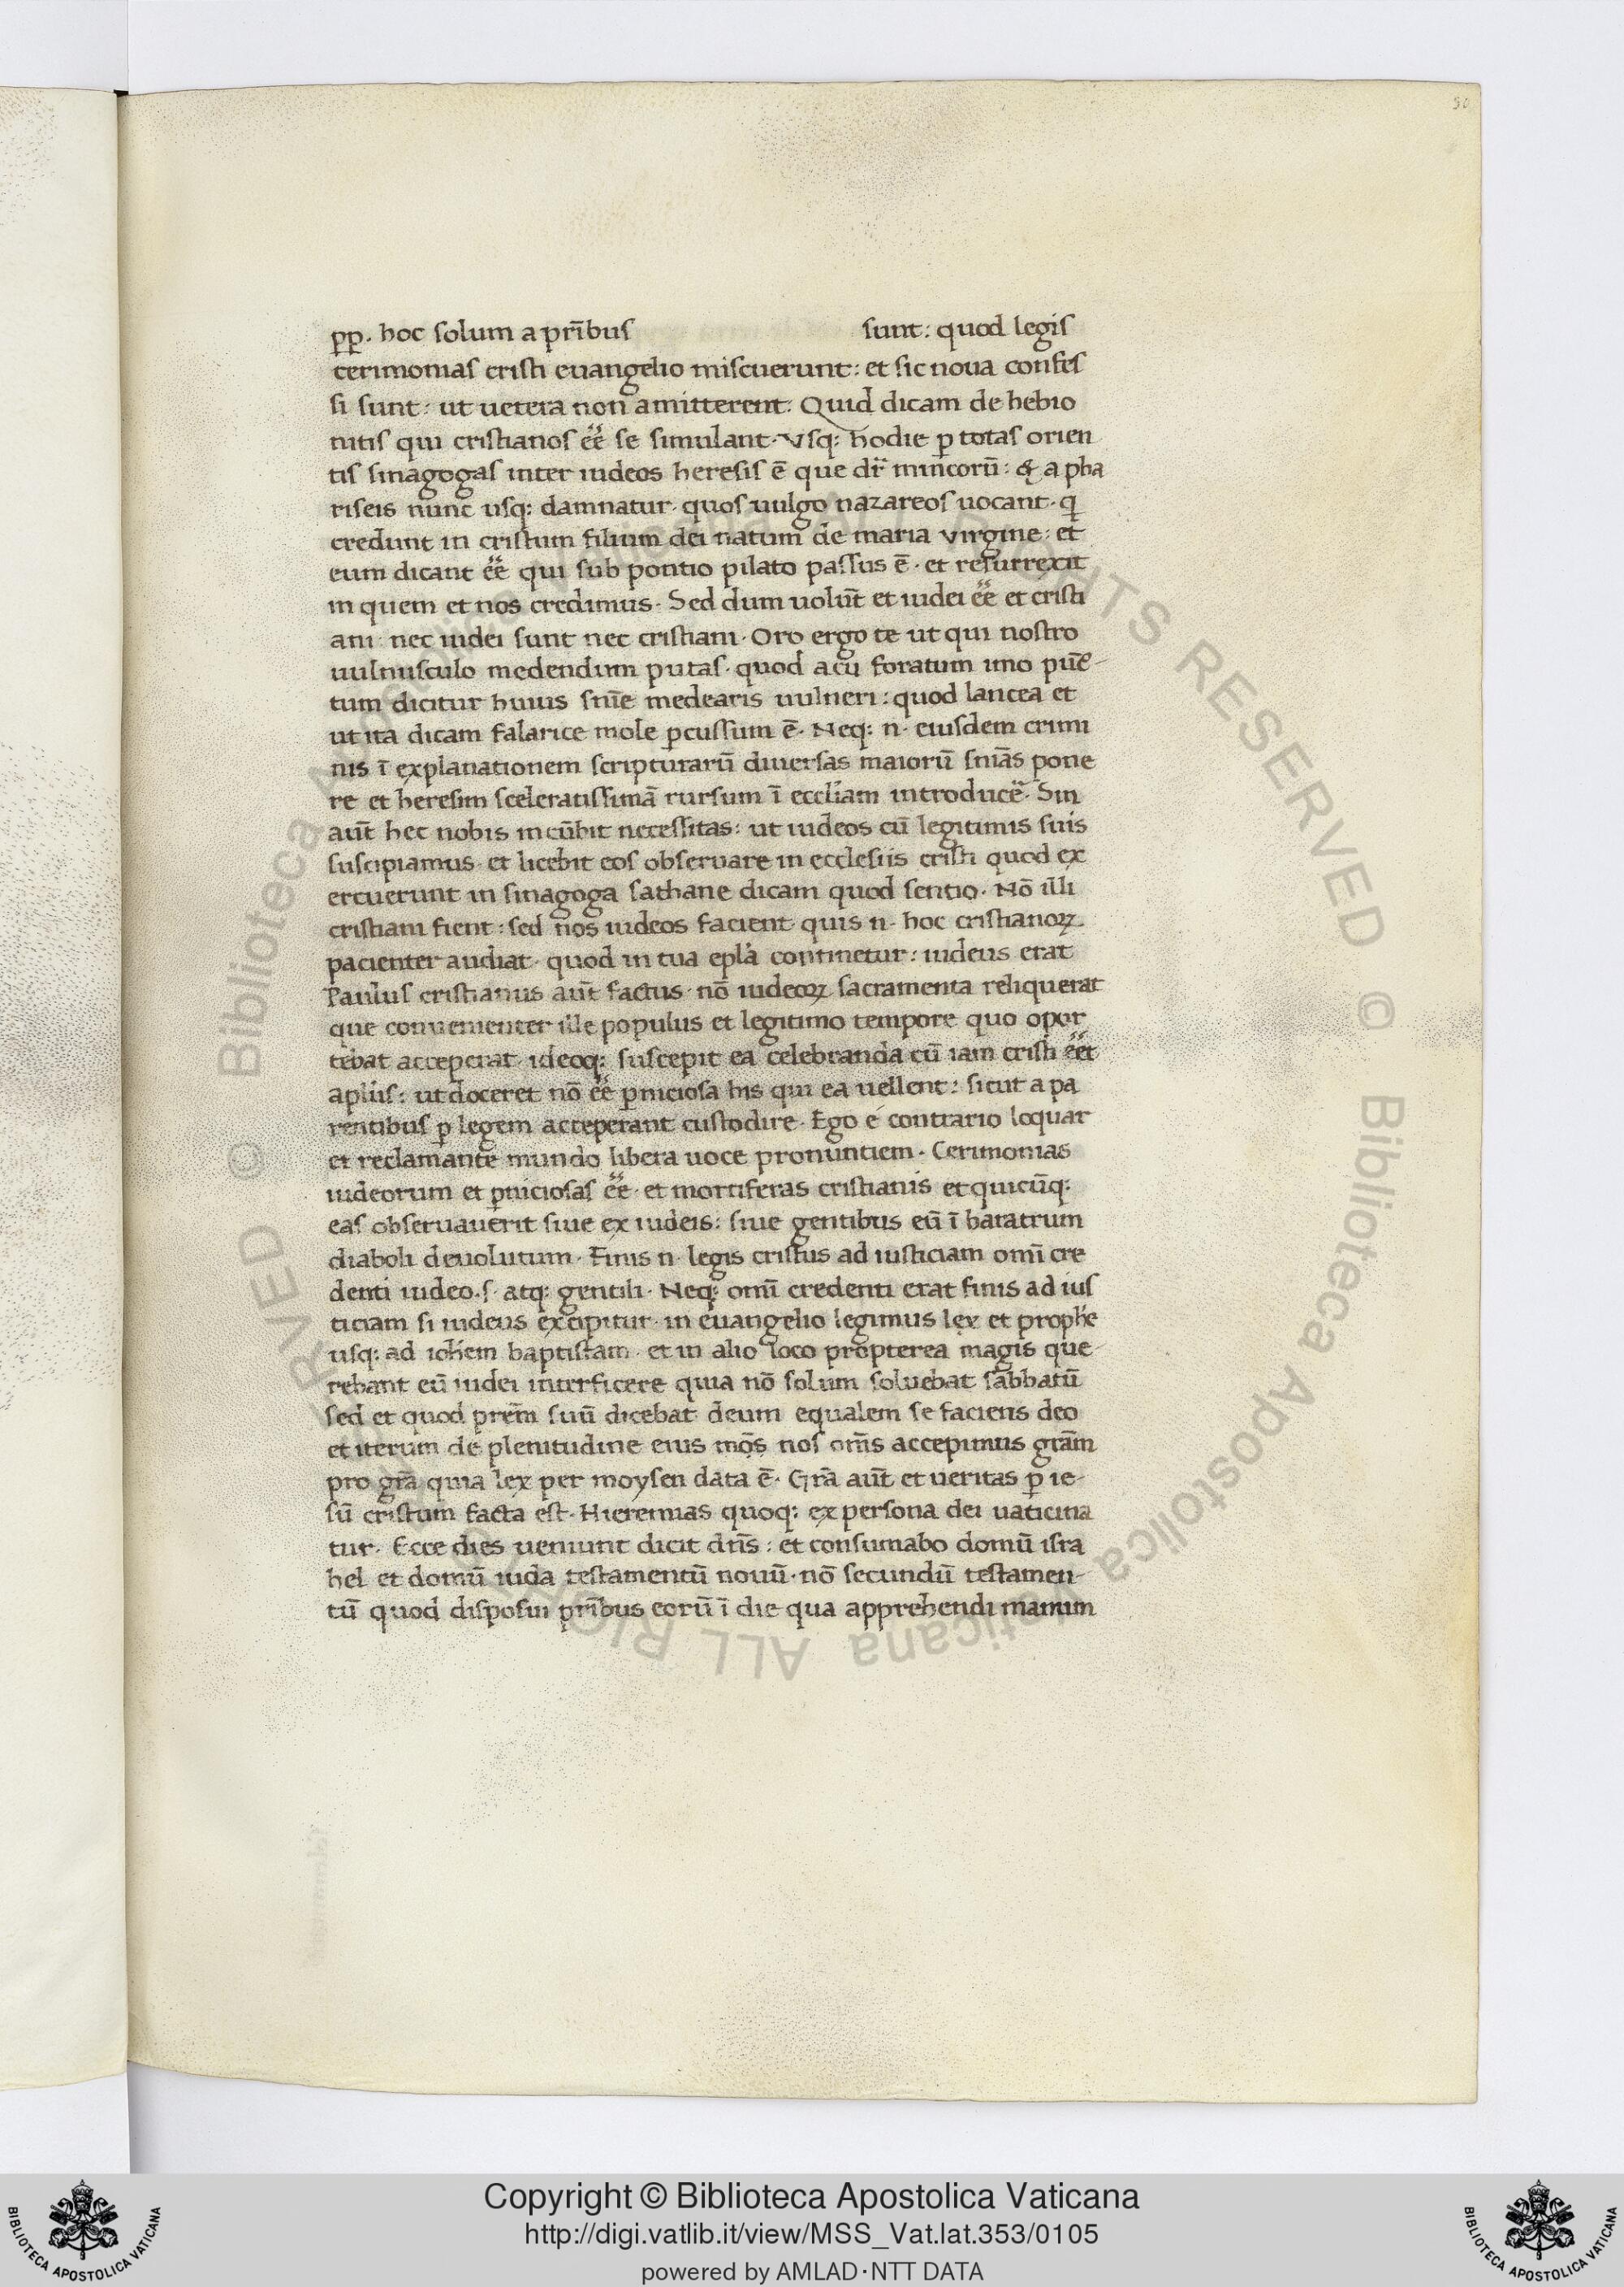 50
pp. hoc solum a prı̄bus sunt: quod legis
cerimonias cristi euangelio miscuerunt: et sic noua confes
si sunt: ut uetera non amitterent. Quid dicam de hebio
nitis qui cristianos ēē se simulant. Vsq: hodie ꝑ totas orien
tis sinagogas inter iudeos heresis ē que dr̄ mineorū: & a pha
riseis nunc usq: damnatur. quos uulgo nazareos uocant. q̄
credunt in cristum filium dei natum de maria virgine: et
eum dicant ēē qui sub pontio pilato passus ē. et resurrexit
in quem et nos credimus. Sed dum uolūt et iudei ēē et cristi
ani: nec iudei sunt nec cristiani. Oro ergo te ut qui nostro
uulnusculo medendum putas. quod acu foratum imo pūc-
tum dicitur huius snīe medearis uulneri: quod lancea et
ut ita dicam falarice mole ꝑcussum ē. Neq: n. eiusdem crimi
nis ī explanationem scripturarū diuersas maiorū snīas pone
re et heresim sceleratissimā rursum ī eccl̄iam introducē. Sin
aūt hec nobis incūbit necessitas: ut iudeos cū legitimis suis
suscipiamus. et licebit eos obseruare in ecclesiis cristi quod ex
ercuerunt in sinagoga sathane dicam quod sentio. Nō illi
cristiani fient: sed nos iudeos facient. quis n. hoc cristianoꝝ
pacienter audiat. quod in tua epl̄a continetur: iudeus erat
Paulus cristianus aūt factus. nō iudeoꝝ sacramenta reliquerat
que conuenienter ille populus et legitimo tempore quo opor
tebat acceperat. ideoq: suscepit ea celebranda cū iam cristi ēēt
apl̄us: ut doceret nō ēē ꝑniciosa his qui ea uellent: sicut a pa
rentibus ꝑ legem acceperant custodire. Ego e contrario loquar
et reclamante mundo libera uoce pronuntiem. Cerimonias
iudeorum et ꝑniciosas ēē. et mortiferas cristianis et quicūq:
eas obseruauerit siue ex iudeis: siue gentibus eū ī baratrum
diaboli deuolutum. Finis n. legis cristus ad iusticiam omī cre
denti iudeo. s. atq: gentili. Neq: omī credenti erat finis ad ius
ticiam si iudeus excipitur. in euangelio legimus lex et prophē
usq: ad ioh̄em baptistam. et in alio loco propterea magis que
rebant eū iudei interficere quia nō solum soluebat sabbatū
sed et quod prēm suū dicebat deum equalem se faciens deo
et iterum de plenitudine eius nos om̄s accepimus grām
pro grā quia lex per moysen data ē. Grā aūt et ueritas ꝑ ie-
sū cristum facta est. Hieremias quoq: ex persona dei uaticina
tur. Ecce dies ueniunt dicit dn̄s: et consumabo domū isra
hel et domū iuda testamentū nouū. nō secundū testamen-
tū quod disposui prı̄bus eorū ī die qua apprehendi manum
Copyright © Biblioteca Apostolica Vaticana
http://digi.vatlib.it/view/MSS_Vat.lat.353/0105
powered by AMLAD·NTT DATA
BIBLIOTECA APOSTOLICA VATICANA
BIBLIOTECA APOSTOLICA VATICANA
© Biblioteca Apostolica Vaticana ALL RIGHTS RESERVED © Biblioteca Apostolica Vaticana ALL RIGHTS RESERVED